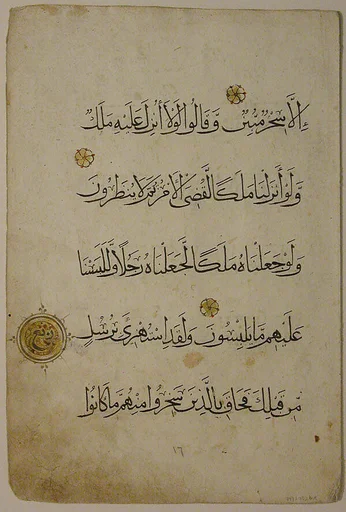 إِلَّا سِحْرٌ مُبِينٌ وَقَالُوا لَوْلَا أُنْزِلَ عَلَيْهِ مَلَكٌ
وَلَوْ أَنْزَلْنَا مَلَكًا لَقُضِيَ الْأَمْرُ ثُمَّ لَا يُنْظَرُونَ
وَلَوْ جَعَلْنَاهُ مَلَكًا لَجَعَلْنَاهُ رَجُلًا وَلَلَبَسْنَا
عَلَيْهِمْ مَا يَلْبِسُونَ وَلَقَدِ اسْتُهْزِئَ بِرُسُلٍ
مِنْ قَبْلِكَ فَحَاقَ بِالَّذِينَ سَخِرُوا مِنْهُمْ مَا كَانُوا
١٦